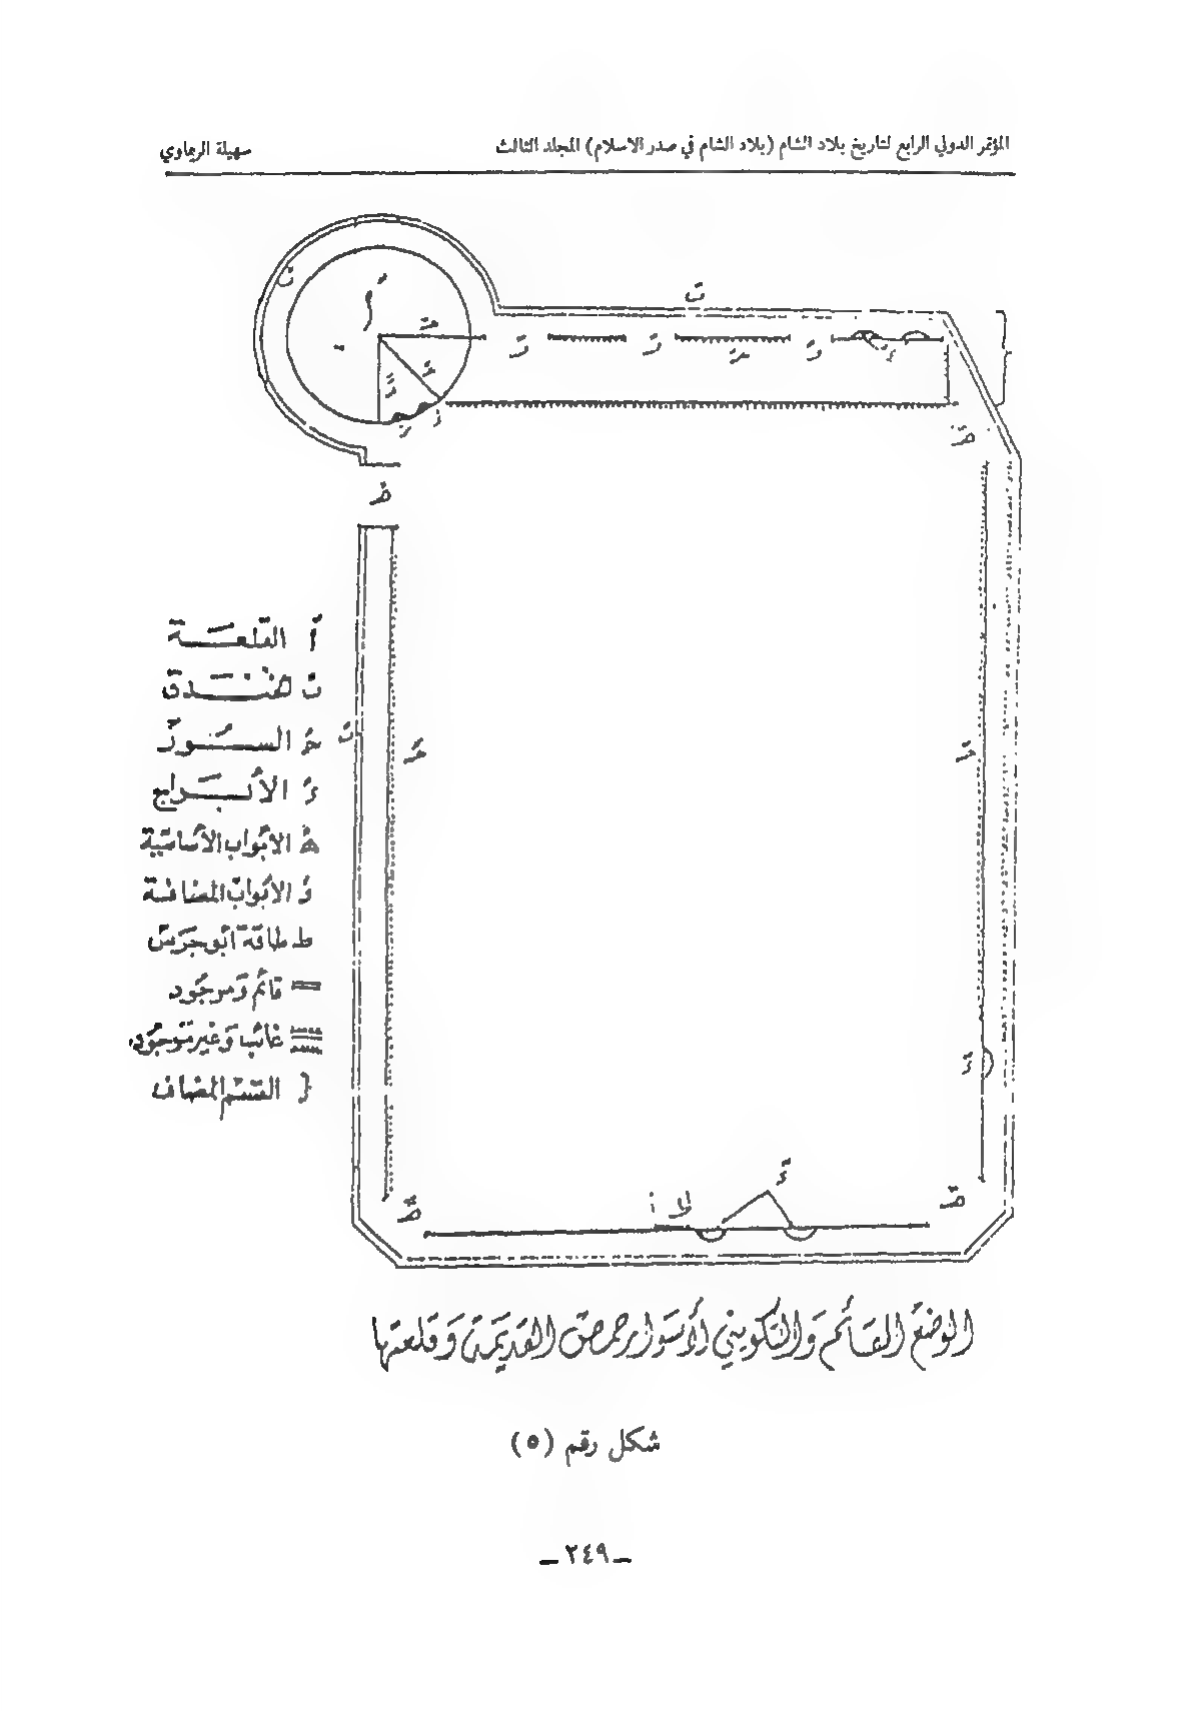 المؤتمر الدولي الرابع لتاريخ بلاد الشام (بلاد الشام في صدر الاسلام) المجلد الثالث
سهيلة الريماوي
أ القلعـــة
ب الخنـــدق
جـ الســـور
د الأبـــراج
هـ الأبواب الأساسية
و الأبواب المضافة
ط طاقة أبو جرس
= قائم وموجود
غائب وغير موجود
} القسم المضاف
الوضع القائم والتكويني لأسوار حمص القديمة وقلعتها
شكل رقم (٥)
ـ ٢٤٩ ـ